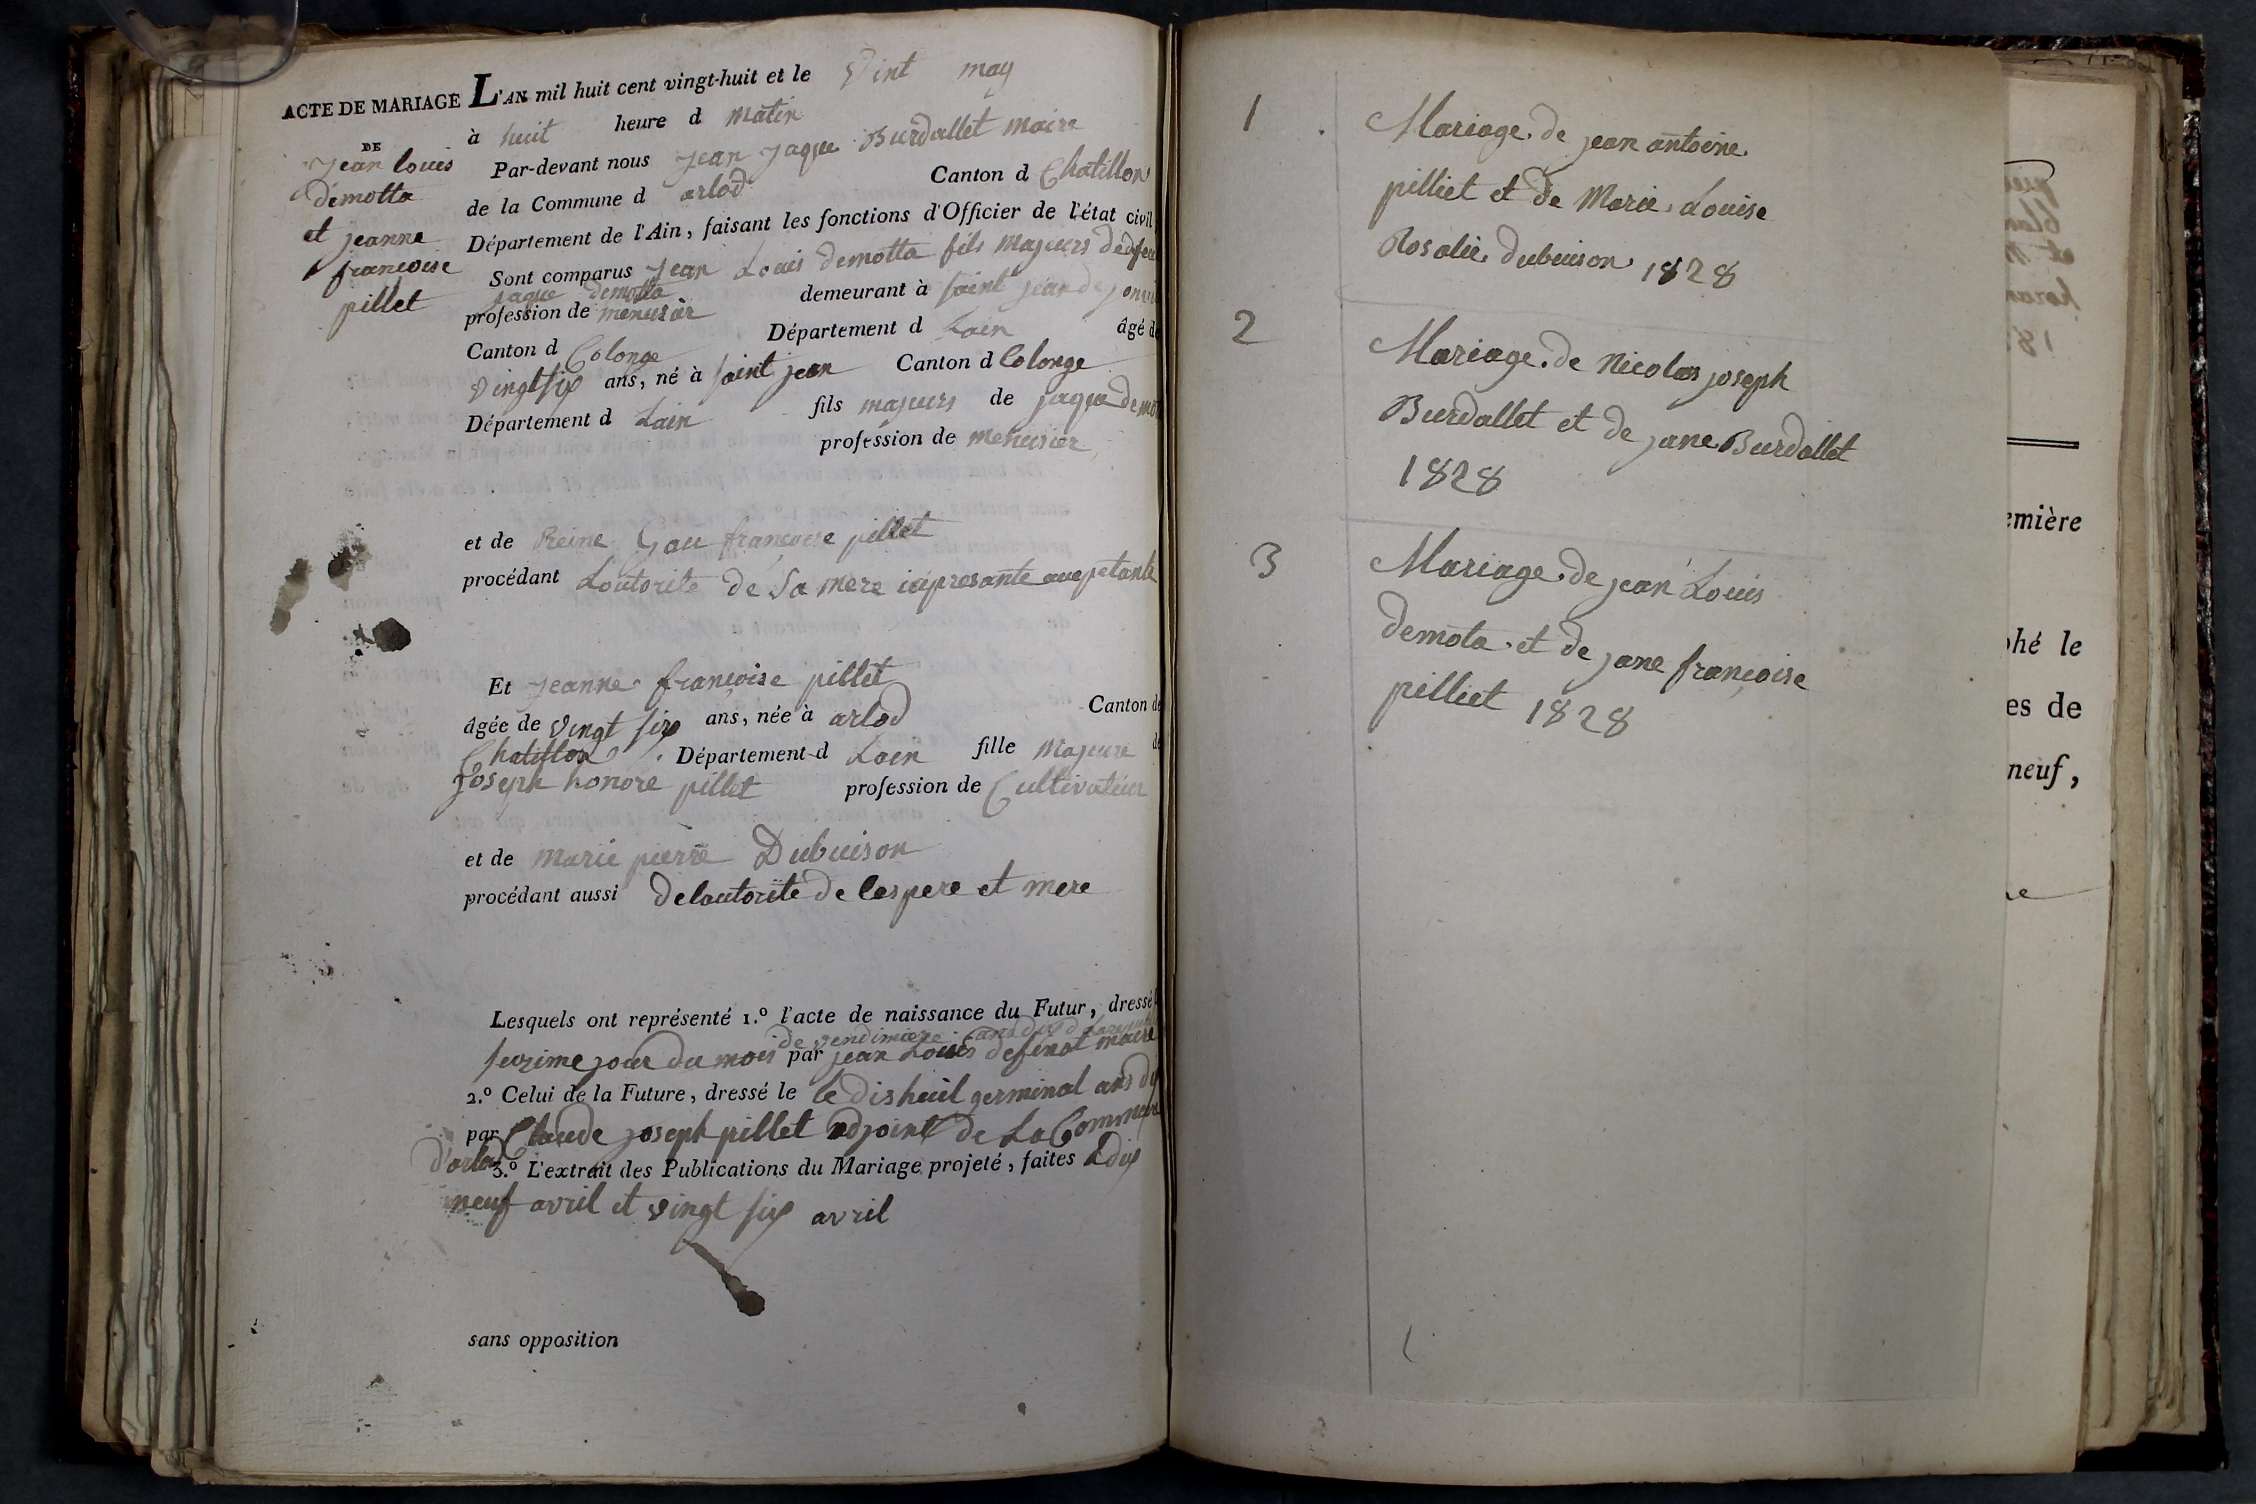 ACTE DE MARIAGE
DE
Jean louis
demotta
et jeanne
françoise
pillet
L'AN mil huit cent vingt-huit et le Vint may
à huit heure d matin
Par-devant nous jean jaque Burdallet maire
de la Commune d arlod Canton d Chatillon
Département de l'Ain, faisant les fonctions d'Officier de l'état civil
Sont comparus jean Louis demotta fils majeurs de feu
jaque demotta
profession de menusier demeurant à saint jean de
Canton d Colonge Département d Lain âgé de
vingt six ans, né à saint jean Canton d Colonge
Département d Lain fils majeurs de jaque demo
profession de menusier
et de Reine françoise pillet
procédant Loutorite de Sa mere
Et jeanne françoise pillet
âgée de vingt six ans, née à arlod Canton de
Chatillon Département d Lain fille Majeure de
Joseph honore pillet profession de Cultivateur
et de marie pierre Dubuison
procédant aussi de loutorite de les pere et mere
Lesquels ont représenté 1.º l'acte de naissance du Futur, dressé
de vendimiere
jour du mois par jean Louis maire
2.º Celui de la Future, dressé le le dishuil germinal ans dix
par Claude joseph pillet adjoint de La Commune
d'arlod
3.º L'extrait des Publications du Mariage projeté, faites Ldix
neuf avril et vingt six avril
sans opposition
1 Mariage de jean antoine
pilliet et de Marie Louise
Rosalie dubuison 1828
2 Mariage de Nicolas joseph
Burdallet et de jane Burdallet
1828
3 Mariage de jean Louis
demota et de jane françoise
pilliet 1828
emière
phé le
es de
neuf,